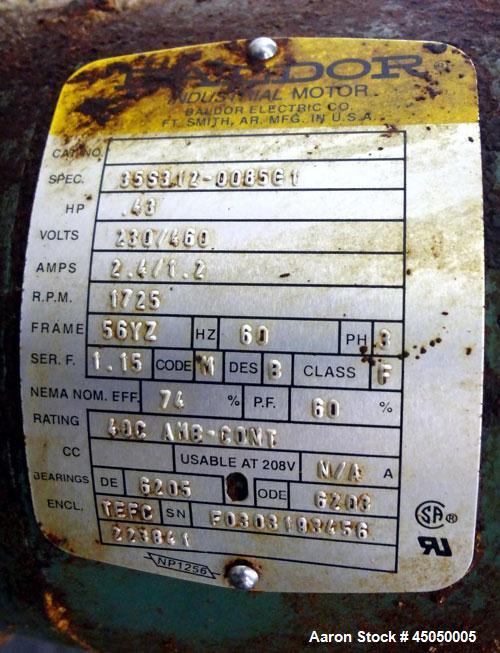 BALDOR ®
INDUSTRIAL MOTOR
BALDOR ELECTRIC CO.
FT. SMITH, AR. MFG. IN U.S.A.
CAT. NO.
SPEC. 35S312-0085G1
HP .43
VOLTS 230/460
AMPS 2.4/1.2
R.P.M. 1725
FRAME 56YZ HZ 60 PH 3
SER. F. 1.15 CODE M DES B CLASS F
NEMA NOM. EFF. 74 % P.F. 60 %
RATING 40C AMB-CONT
CC USABLE AT 208V N/A A
BEARINGS DE 6205 ODE 6203
ENCL. TEFC SN F0303193456
223841
NP1256
SA ®
Aaron Stock # 45050005